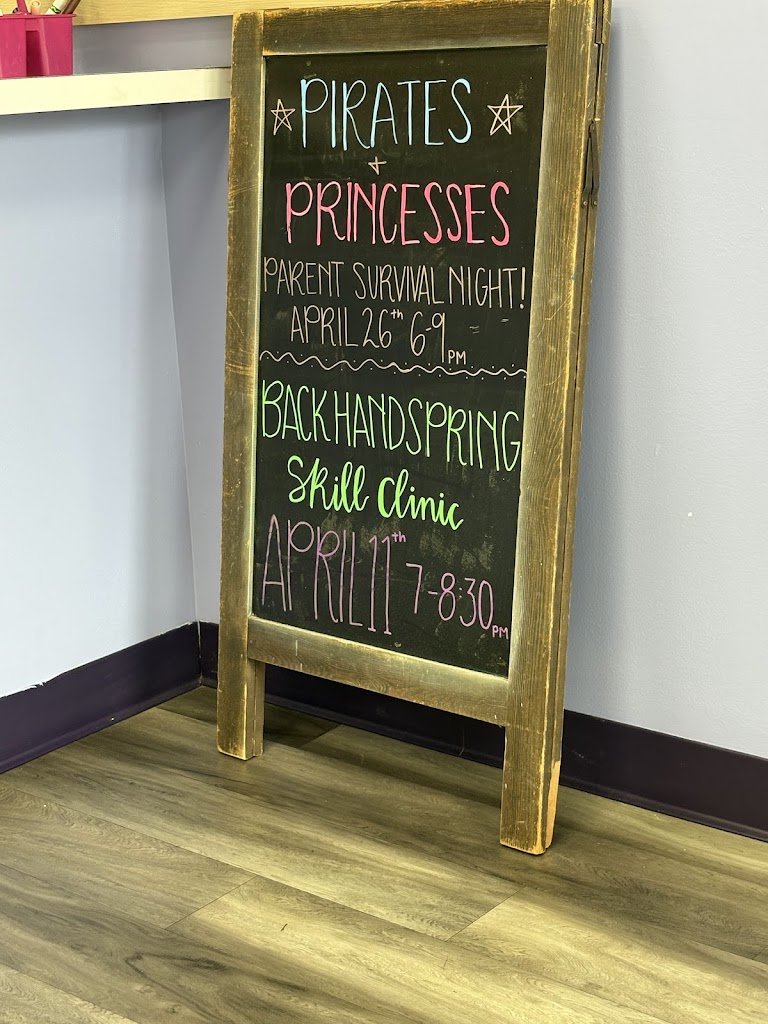 PIRATES
+
PRINCESSES
PARENT SURVIVAL NIGHT!
APRIL 26th 6-9 PM
BACK HANDSPRING
Skill Clinic
APRIL 11th 7-8:30 PM